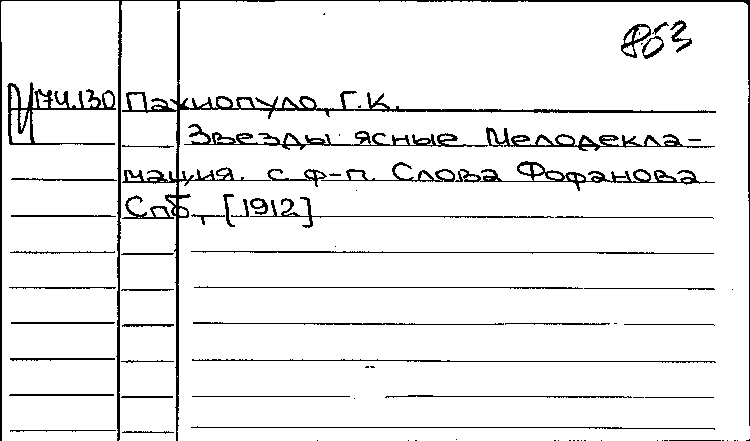 853
174.130 Пахиопуло, Г.К.
Звезды ясные Мелодекла-
мация. с ф-п. Слова Фофанова
Спб., [1912]